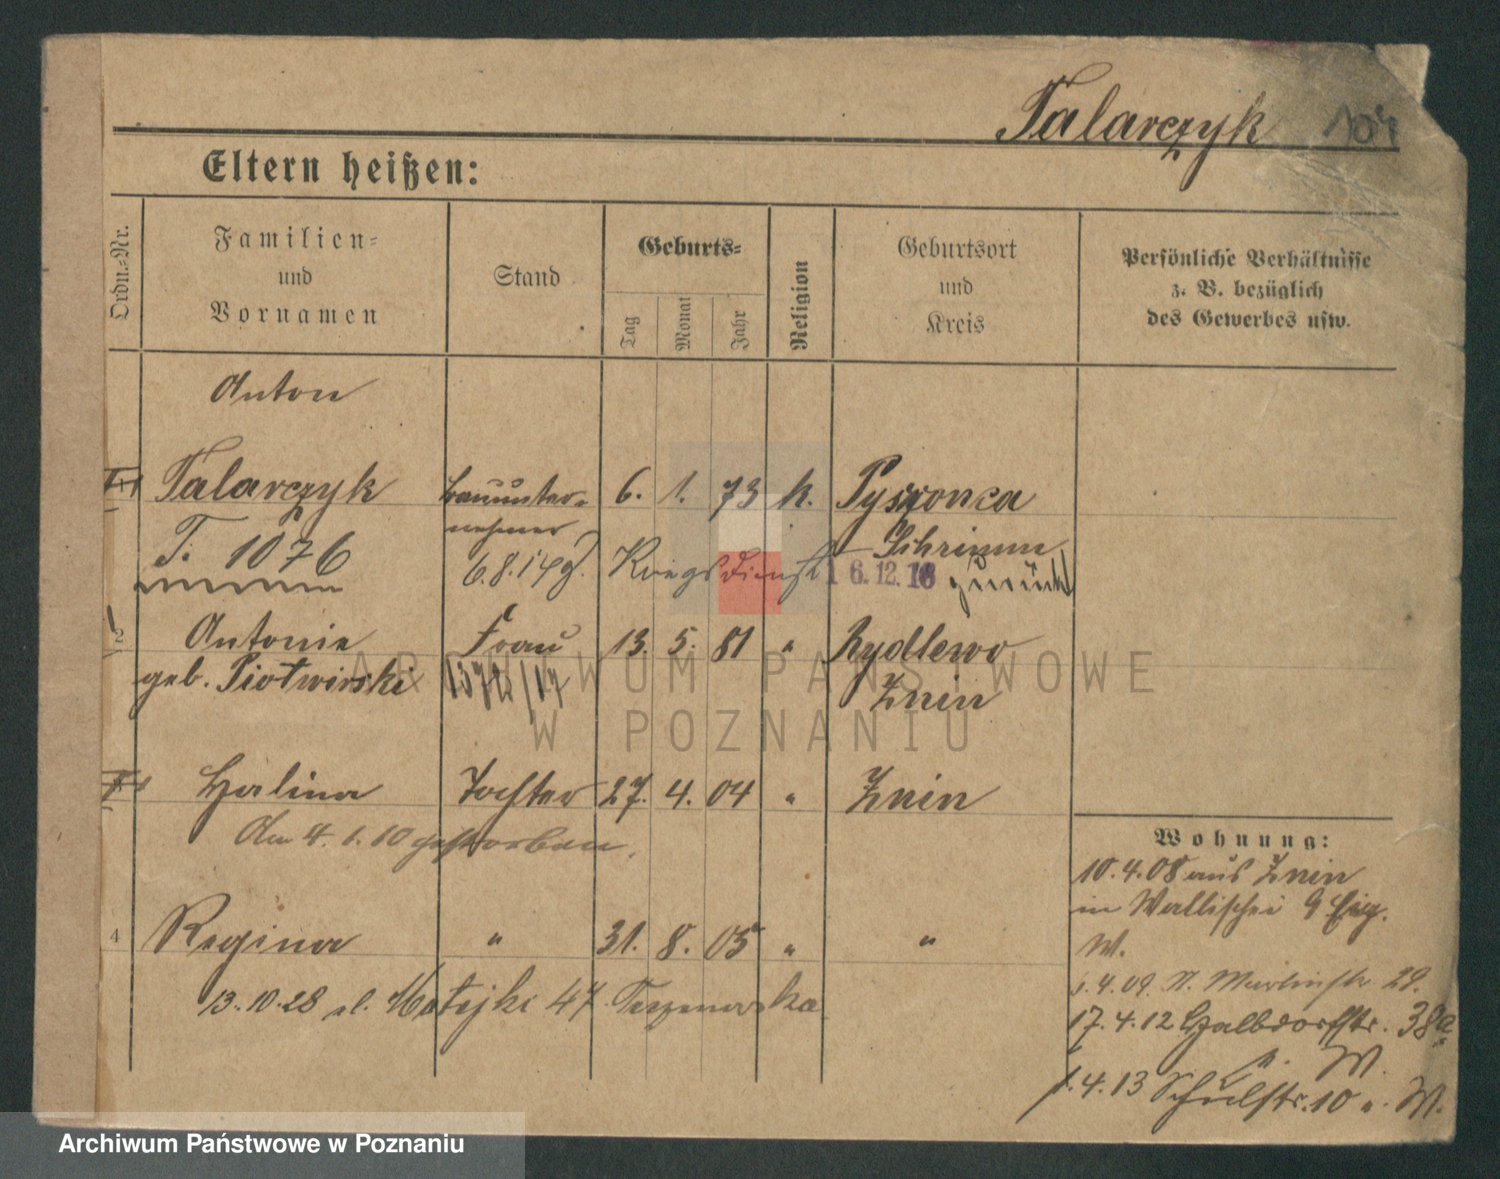 Talarczyk 104
Eltern heißen:
Ordn.-Nr.
Familien-
und
Vornamen
Stand
Geburts-
Tag
Monat
Jahr
Religion
Geburtsort
und
Kreis
Persönliche Verhältnisse
z. B. bezüglich
des Gewerbes usw.
Anton
1 Talarczyk Bauunter- 6. 1. 73 k. Pyszonca
nehmer Schrimm
T. 1076 6.8.14 Kriegsdienst 16.12.18 zurück
2 Antonie Frau 13. 5. 81 " Rydlewo
geb. Piotwirski 1372/17 Znin
Halina Tochter 27. 4. 04 " Znin
Am 4. 1. 10 gestorben.
4 Regina " 31. 8. 05 " "
13.10.28 ul. Matejki 47
Wohnung:
10.4.08 aus Znin
in Wallischei 9 Eig.
W.
1.4.09 N. Martinstr. 29.
17.4.12 Halbdorfstr. 38a
e. W.
1.4.13 Schulstr. 10 e. W.
ARCHIWUM PAŃSTWOWE
W POZNANIU
Archiwum Państwowe w Poznaniu